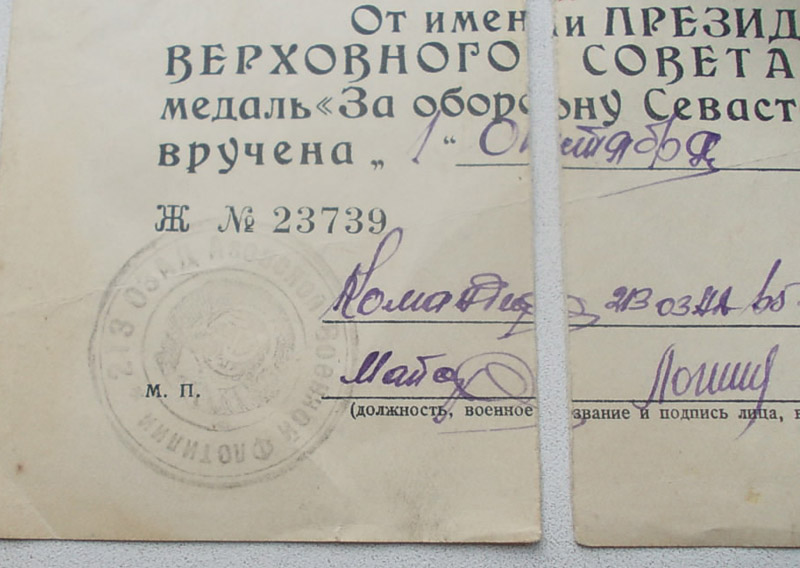 От имени ПРЕЗИД
ВЕРХОВНОГО СОВЕТА
медаль «За оборону Севаст
вручена „ 1 “ Октября
Ж № 23739
213 ОЗАД Азовской Военной Флотилии
Командир 213 ОЗАД
М. П.
Майор
(должность, военное звание и подпись лица, в